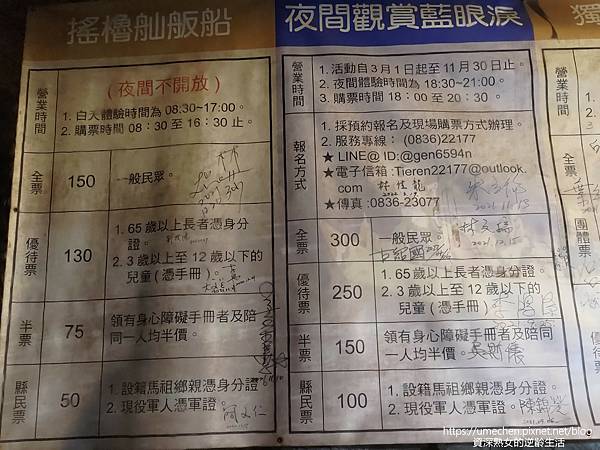 搖櫓舢舨船
營業時間
(夜間不開放)
1. 白天體驗時間為 08:30~17:00。
2. 購票時間 08：30 至 16：30 止。
全票
150
一般民眾。
優待票
130
1. 65 歲以上長者憑身分證。
2. 3 歲以上至 12 歲以下的兒童(憑手冊)。
半票
75
領有身心障礙手冊者及陪同一人均半價。
縣民票
50
1. 設籍馬祖鄉親憑身分證。
2. 現役軍人憑軍證。
夜間觀賞藍眼淚
營業時間
1. 活動自 3 月 1 日起至 11 月 30 日止。
2. 夜間體驗時間為 18:30~21:00。
3. 購票時間 18：00 至 20：30 。
報名方式
1. 採預約報名及現場購票方式辦理。
2. 服務專線： (0836)22177
★ LINE@ ID:@gen6594n
★電子信箱：Tieren22177@outlook.
com
★傳真 :0836-23077
2021.11.13
全票
300
一般民眾。
2021.12.15
優待票
250
1. 65 歲以上長者憑身分證。
2. 3 歲以上至 12 歲以下的
兒童 (憑手冊)
半票
150
領有身心障礙手冊者及陪
同一人均半價。
縣民票
100
1. 設籍馬祖鄉親憑身分證。
2. 現役軍人憑軍證。
獨
營業時間
全票
團體票
半票
縣民票
https://umechen.pixnet.net/blog
資深熟女的逆齡生活